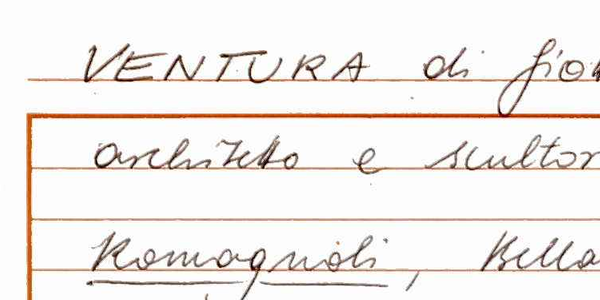 VENTURA di Gio
architetto e scultor
Romagnoli, Bella